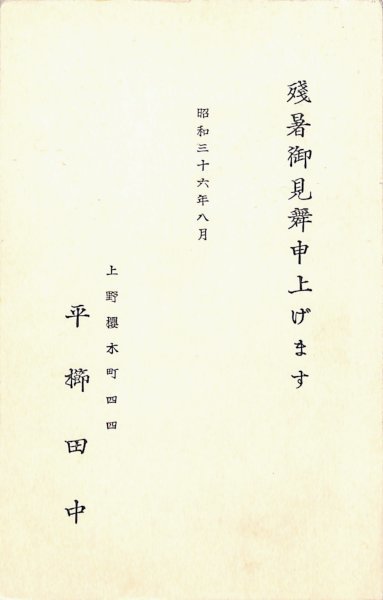 殘暑御見舞申上げます
昭和三十六年八月
上野櫻木町四四
平櫛田中